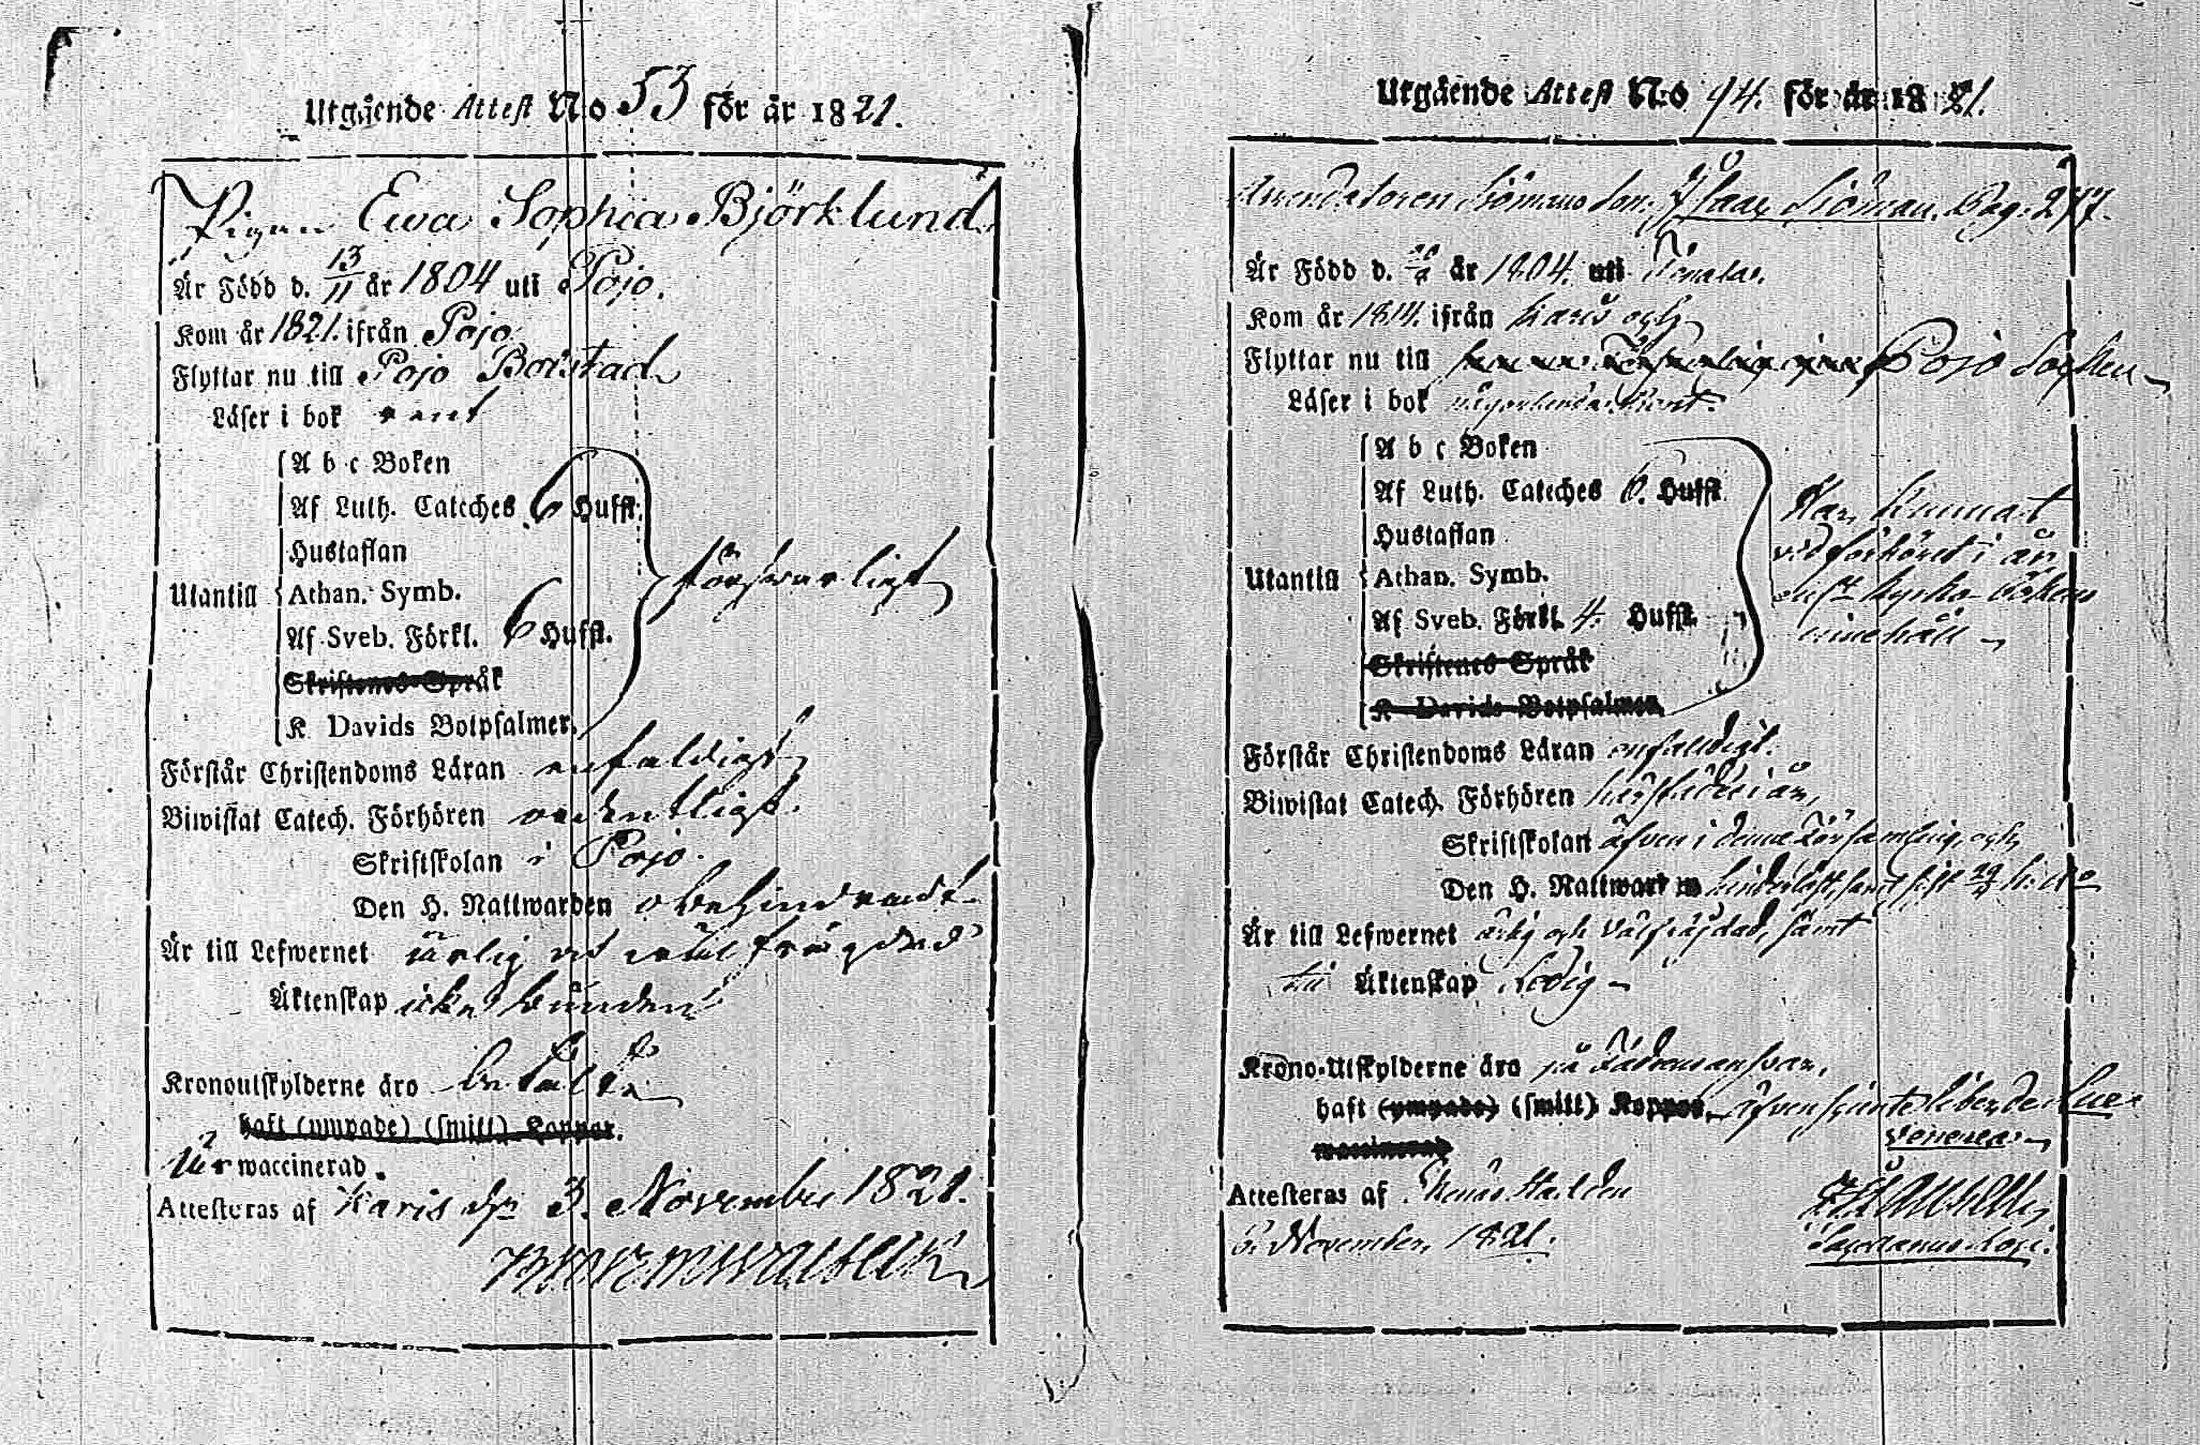 Utgående Attest No 53 för år 1821.
Pigan Ewa Sophia Björklund
Är Född d. 13/11 år 1804 uti Pojo.
Kom år 1821. ifrån Pojo.
Flyttar nu till Pojo Borstad
Läser i bok rent
Utantill
A b c Boken
Af Luth. Cateches 6 Hufst.
Hustaflan
Athan. Symb.
Af Sveb. Förkl. 6 Hufst.
Skriftenes Språk
K Davids Botpsalmer.
försvarligt
Förstår Christendoms Läran enfaldigt
Biwistat Catech. Förhören ordentligt.
Skriftskolan i Pojo.
Den H. Nattwarden obehindradt.
Är till Lefwernet ärlig och väl frägdad
Äktenskap icke bunden
Kronoutskylderne äro betalta
haft (ympade) (smitt) Koppor.
Är waccinerad.
Attesteras af Karis den 3. November 1821.
Utgående Attest N:o 94. för år 1821.
Arrendatoren Siömans Son, Isaac Siöman. Pag. 277.
Är Född d. år 1804. uti Tenala.
Kom år 1814. ifrån Karis och
Flyttar nu till Pojo Sochn
Läser i bok någorlunda rent.
Utantill
A b c Boken
Af Luth. Cateches 6. Hufst.
Hustaflan
Athan. Symb.
Af Sveb. Förkl. 4. Hufst.
Skriftenes Språk
K Davids Botpsalmer.
Har kunnat
vid förhöret i år
innehåll
Förstår Christendoms Läran enfaldigt.
Biwistat Catech. Förhören härstädes i år,
Skriftskolan äfven i denna Församling, och
Den H. Nattward
Är till Lefwernet ärlig och välfräjdad, samt
till Äktenskap Ledig
Krono-Utskylderne äro på Fadrens ansvar,
haft (ympade) (smitt) Koppor, äfven Lues
Venerea.
waccinerad
Attesteras af
6. November 1821.